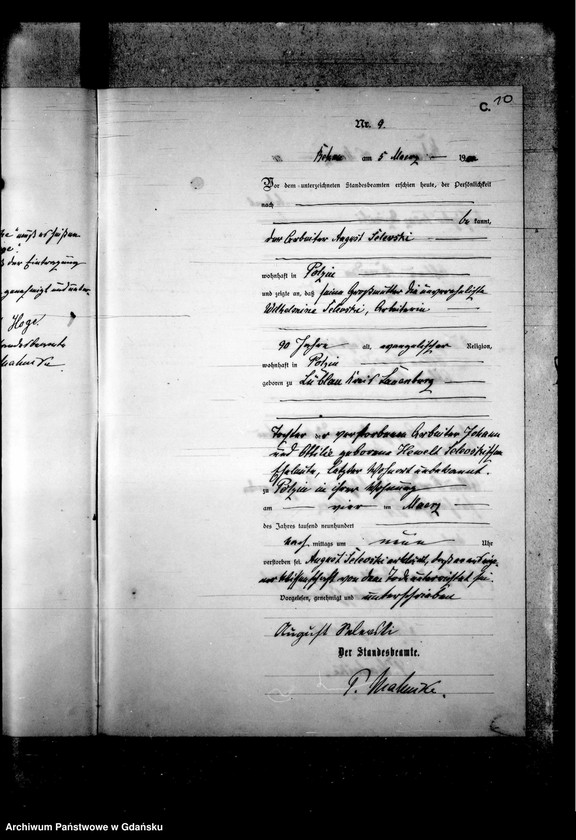 C. 10
Nr. 9.
am 5 Maerz 19
Vor dem unterzeichneten Standesbeamten erschien heute, der Persönlichkeit
nach
be kannt,
der Arbeiter August Selewski
wohnhaft in Polzin
und zeigte an, daß seine Großmutter die unverehelichte
Wilhelmine Selewski, Arbeiterin
90 Jahre alt, evangelischer Religion,
wohnhaft in Polzin
geboren zu Lüblau Kreis Lauenburg
Tochter der verstorbenen Arbeiter Johann
und Ottilie geborene Hewelt Selewskischen
Eheleute, letzter Wohnort unbekannt.
zu Polzin in ihrer Wohnung
am vier ten Maerz
des Jahres tausend neunhundert
nach mittags um neun Uhr
verstorben sei. August Selewski erklärt, daß er aus eige-
ner Wissenschaft von dem Tode unterrichtet sei.
Vorgelesen, genehmigt und unterschrieben
August Selewski
Der Standesbeamte.
der Eintragung
genehmigt und unter-
Hoge.
Archiwum Państwowe w Gdańsku